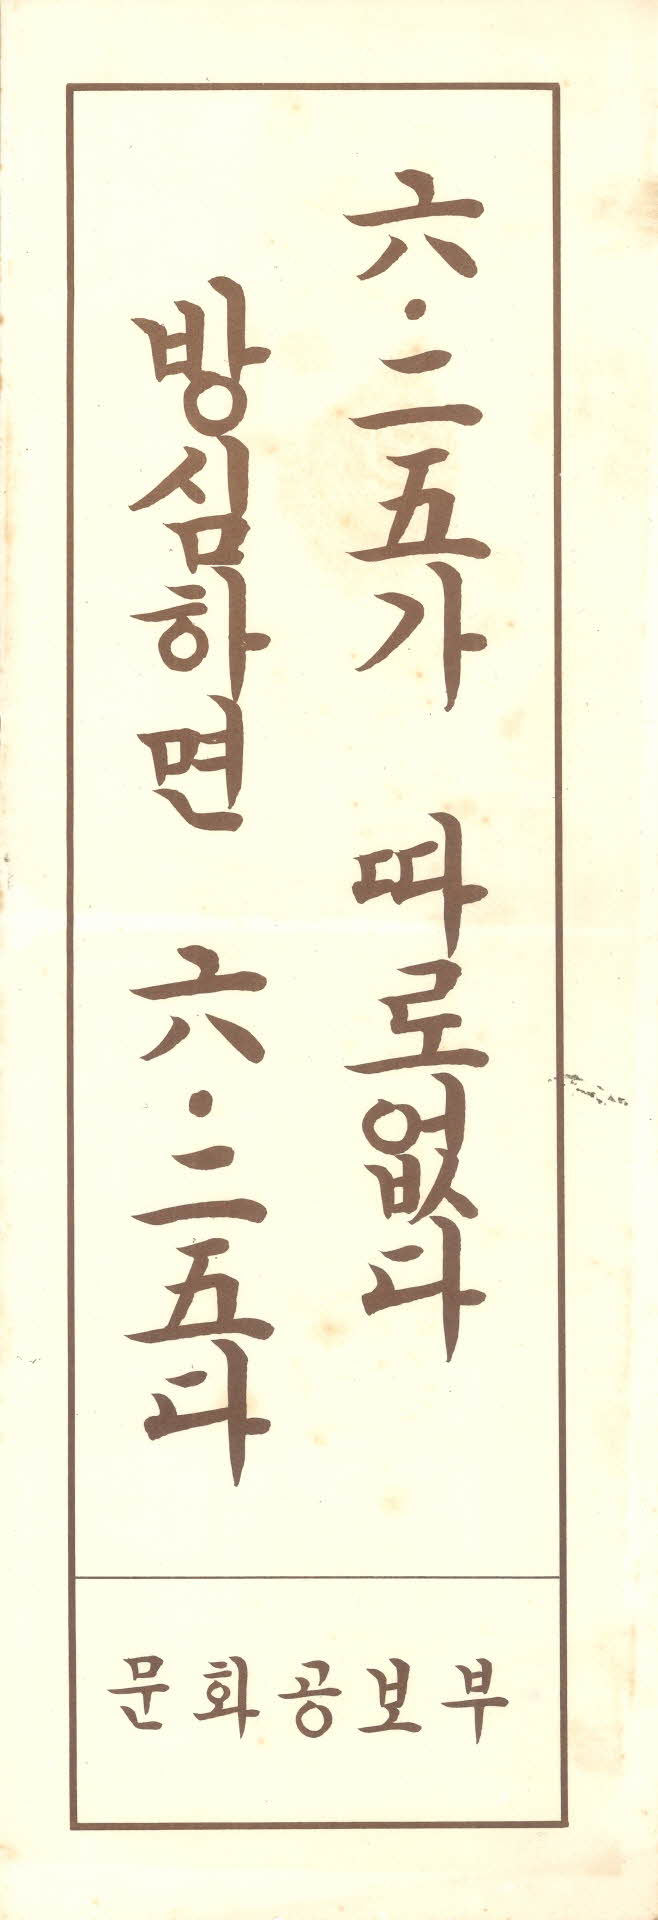 六·二五가 따로없다
방심하면 六·二五다
문화공보부